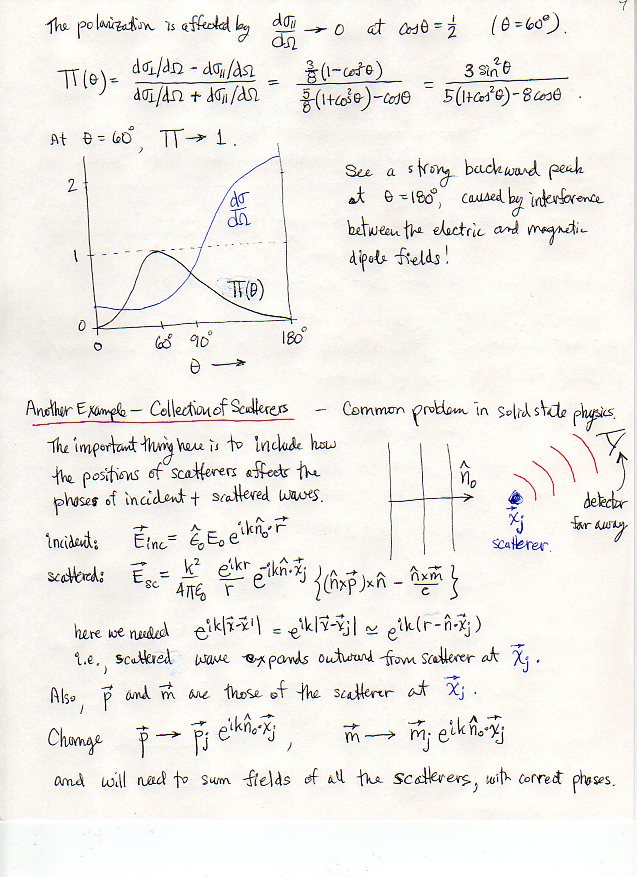 7
The polarization is affected by dσ∥/dΩ → 0 at cosθ = 1/2 (θ = 60°).
Π(θ) = (dσ⊥/dΩ - dσ∥/dΩ)/(dσ⊥/dΩ + dσ∥/dΩ) = (3/8(1-cos²θ))/(5/8(1+cos²θ)-cosθ) = (3 sin²θ)/(5(1+cos²θ)-8cosθ) .
At θ = 60°, Π → 1.
2
dσ/dΩ
1
Π(θ)
0
0 60° 90° 180°
θ →
See a strong backward peak
at θ = 180°, caused by interference
between the electric and magnetic
dipole fields!
Another Example – Collection of Scatterers – Common problem in solid state physics.
The important thing here is to include how
the positions of scatterers affects the
phases of incident + scattered waves.
n̂₀
x⃗j
scatterer
detector
far away
incident: E⃗inc = ε̂₀ E₀ e^{ik n̂₀·r⃗}
scattered: E⃗sc = k²/4πε₀ e^{ikr}/r e^{-ik n̂·x⃗j} {(n̂×p⃗)×n̂ - n̂×m⃗/c}
here we needed e^{ik|x⃗-x⃗'|} = e^{ik|x⃗-x⃗j|} ≃ e^{ik(r-n̂·x⃗j)}
i.e., scattered wave expands outward from scatterer at x⃗j.
Also, p⃗ and m⃗ are those of the scatterer at x⃗j.
Change p⃗ → p⃗j e^{ik n̂₀·x⃗j}, m⃗ → m⃗j e^{ik n̂₀·x⃗j}
and will need to sum fields of all the scatterers, with correct phases.